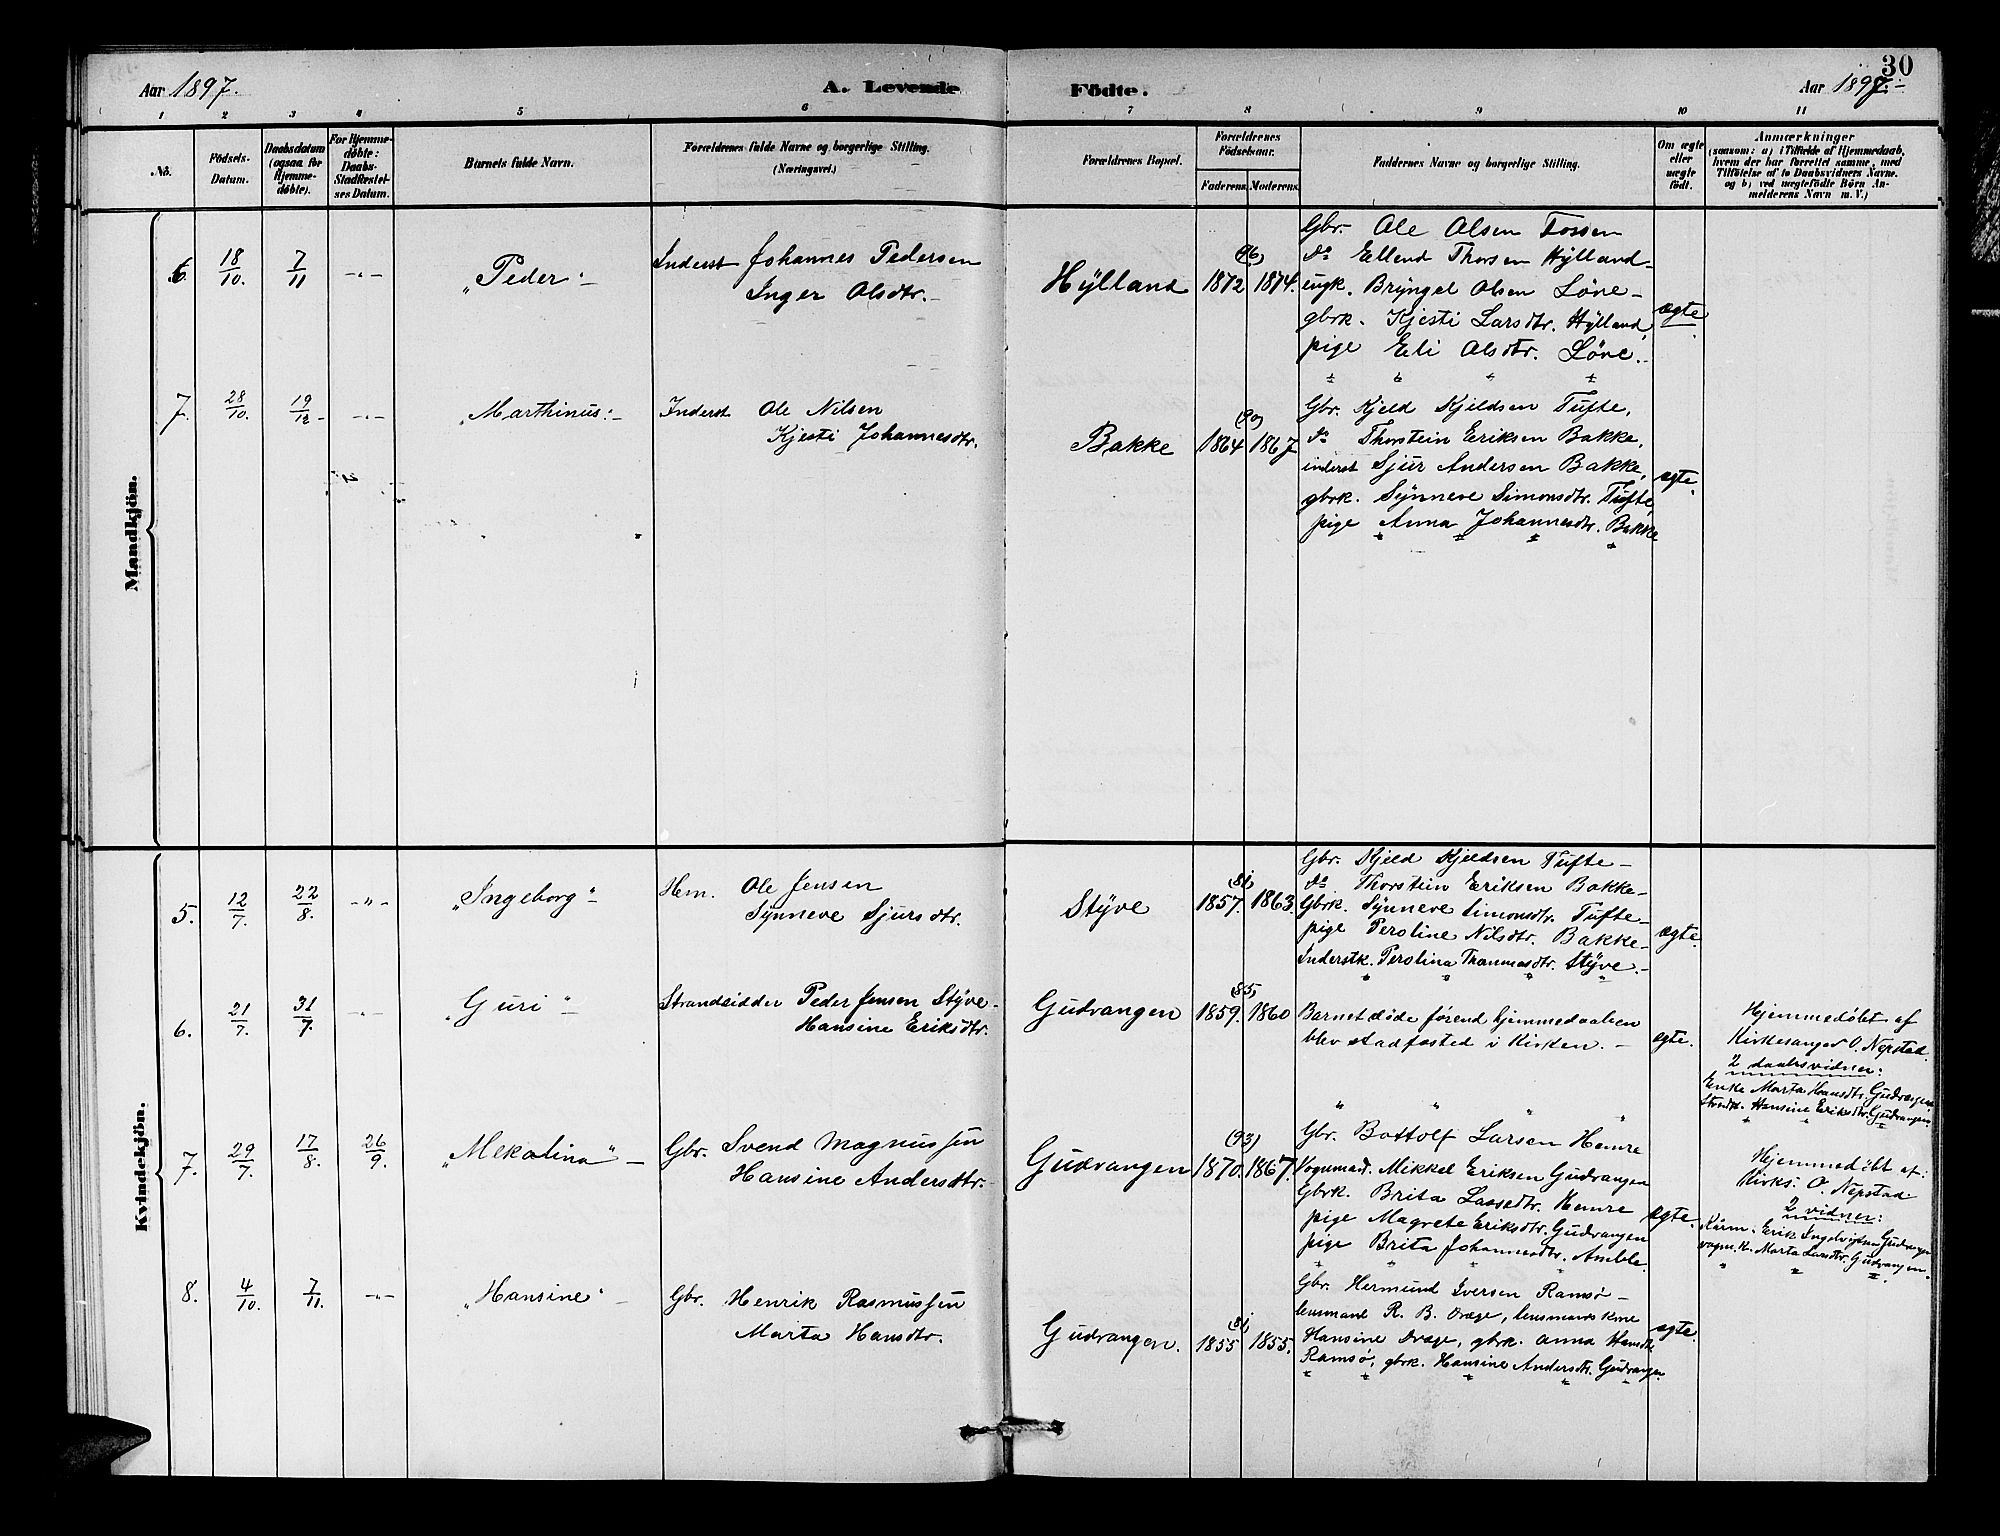 30
Aar 1897.
A. Levende
Födte.
Aar 1897.
1 2 3 4 5 6 7 8 9 10 11
No.
Födsels-
Datum.
Daabsdatum
(ogsaa for
Hjemme-
döbte).
For Hjemme-
döbte:
Daabs-
Stadfæstel-
ses Datum.
Barnets fulde Navn.
Forældrenes fulde Navne og borgerlige Stilling.
(Næringsvei.)
Forældrenes Bopæl.
Forældrenes
Födselsaar.
Faderens. Moderens.
Faddernes Navne og borgerlige Stilling.
Om ægte
eller
uægte
födt.
Anmærkninger
(saasom: a) i Tilfælde af Hjemmedaab,
hvem der har forrettet samme, med
Tilföielse af to Daabsvidners Navne.
og b) ved uægtefödte Börn An-
melderens Navn m. V.)
Mandkjön.
6. 18/10. 7/11 -"- "Peder"- Inderst Johannes Pedersen
Inger Olsdtr.-
Hÿlland (96) 1872 1874.
Gbr. Ole Olsen Fossen
Do Ellend Thorsen Hÿlland-
ungk. Brÿngel Olsen Löne-
gbrk. Kjesti Larsdtr. Hÿlland,
pige Eli Olsdtr. Löne.-
ægte
7. 28/10. 19/12- -"- "Marthinus:- Inderst Ole Nilsen
Kjesti Johannesdtr.
Bakke (90) 1864 1867
Gbr. Kjeld Kjeldsen Tufte,
Do Thorstein Eriksen Bakke,
inderst Sjur Andersen Bakke,
gbrk. Sÿnneve Simonsdtr. Tufte
pige Anna Johannesdtr. Bakke
ægte.
Kvindekjön.
5. 12/7. 22/8. -"- "Ingeborg"- Hem. Ole Jensen
Sÿnneve Sjursdtr.
Stÿve (81) 1857. 1863.
Gbr. Kjeld Kjeldsen Tufte-
Do Thorstein Eriksen Bakke-
Gbrk. Sÿnneve Simonsdtr. Tufte-
pige Peroline Nilsdtr. Bakke-
Inderstk. Perolina Thommasdtr. Stÿve.-
ægte.
6. 21/7. 31/7. -"- "Guri"- Strandsidder Peder Jensen Stÿve-
Hansine Eriksdtr.
Gudvangen (85) 1859. 1860
Barnet döde förend hjemmedaaben
blev stadfæsted i Kirken.-
ægte.
Hjemmedöbt af
Kirkesanger O. Nepstad.
2 daabsvidner:
Enke Marta Hansdtr. Gudvangen
Strandk. Hansine Eriksdtr. Gudvangen
7. 29/7. 17/8. 26/9. "Mekalina"- Gbr. Svend Magnussen
Hansine Andersdtr.-
Gudvangen (93) 1870. 1867.
Gbr. Bottolf Larsen Hemre
Vognmad. Mikkel Eriksen Gudvangen
Gbrk. Brita Lassedtr. Hemre
pige Magrete Eriksdtr. Gudvangen
pige Brita Johannesdtr. Amble.
ægte.
Hjemmedöbt af:
Kirks: O. Nepstad
2 vidner:
Erik Gudvangen
vogn.k. Marta Larsdtr. Gudvangen.
8. 4/10. 7/11. -"- "Hansine"- Gbr. Henrik Rasmussen
Marta Hansdtr.
Gudvangen. (81) 1855 1855.
Gbr. Hermund Iversen Ramsö-
lensmand R. B. Drage, lensmandskone
Hansine Drage, gbrk. Anna Hansdtr
Ramsö, gbrk. Hansine Andersdtr. Gudvangen
ægte.